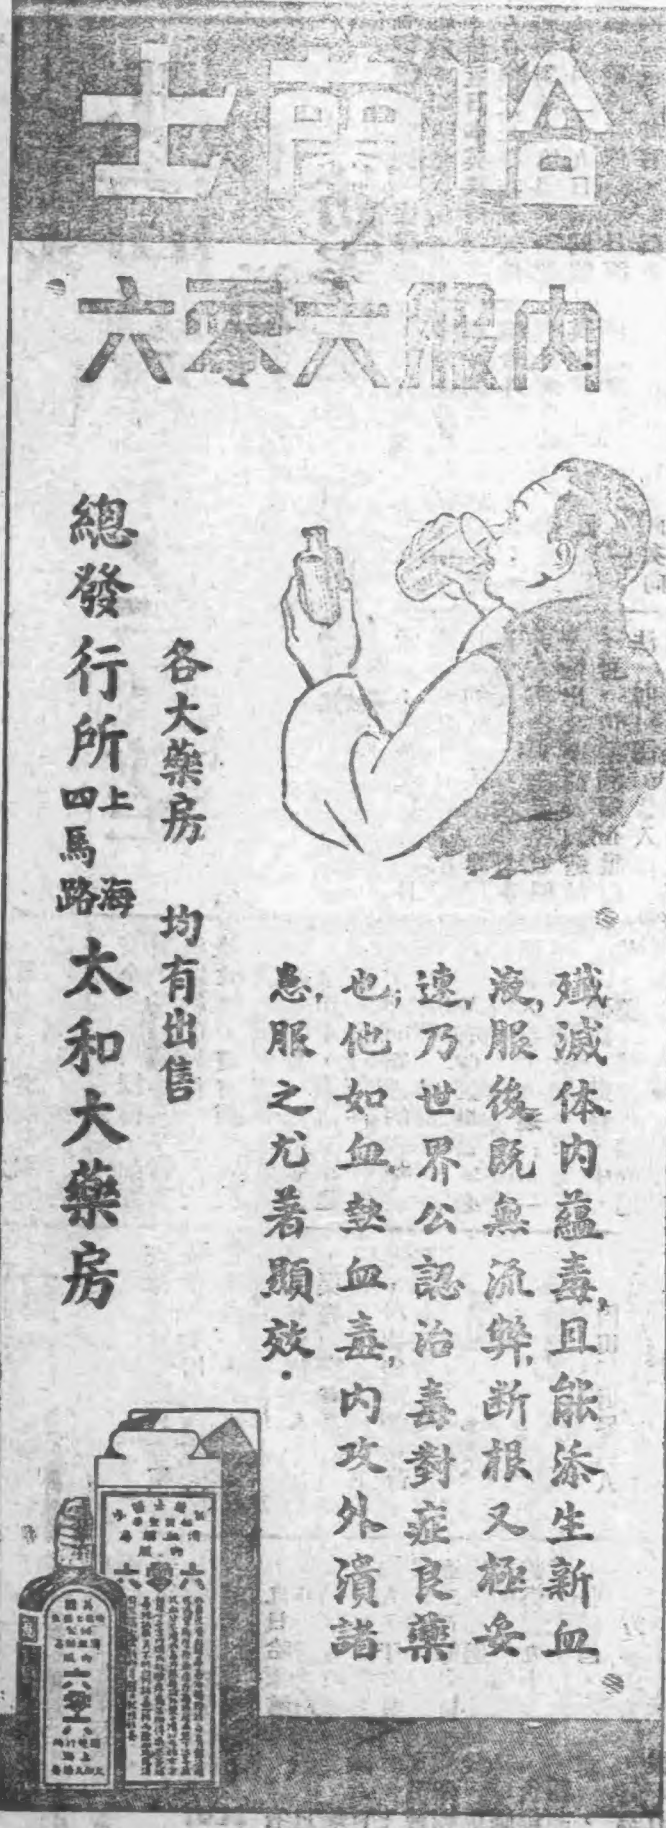 哈蘭士
內服六零六
殲滅体內蘊毒,且能添生新血
液,服後既無流弊,断根又極妥
速,乃世界公認治毒對症良藥
也;他如血熱血毒,內攻外潰諸
患,服之尤著顯效.
各大藥房 均有出售
總發行所 上海四馬路 太和大藥房
六零六
六零六